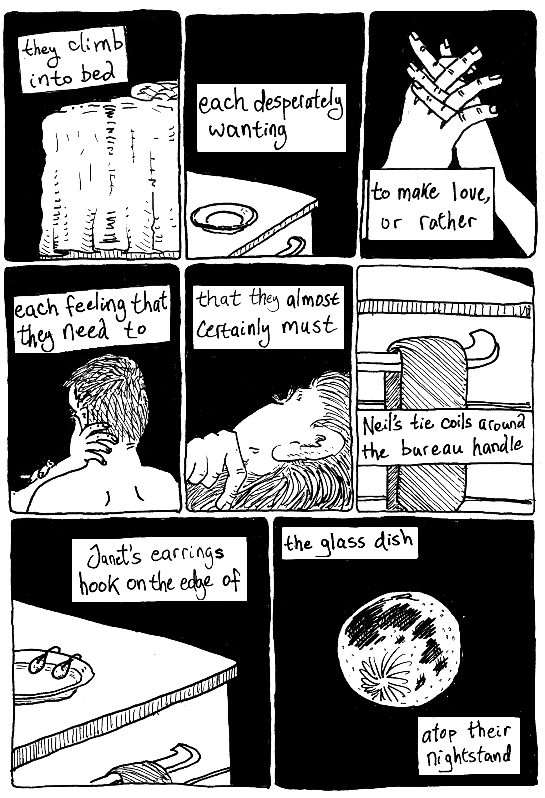 they climb
into bed
each desperately
wanting
to make love,
or rather
each feeling that
they need to
that they almost
certainly must
Neil's tie coils around
the bureau handle
Janet's earrings
hook on the edge of
the glass dish
atop their
nightstand